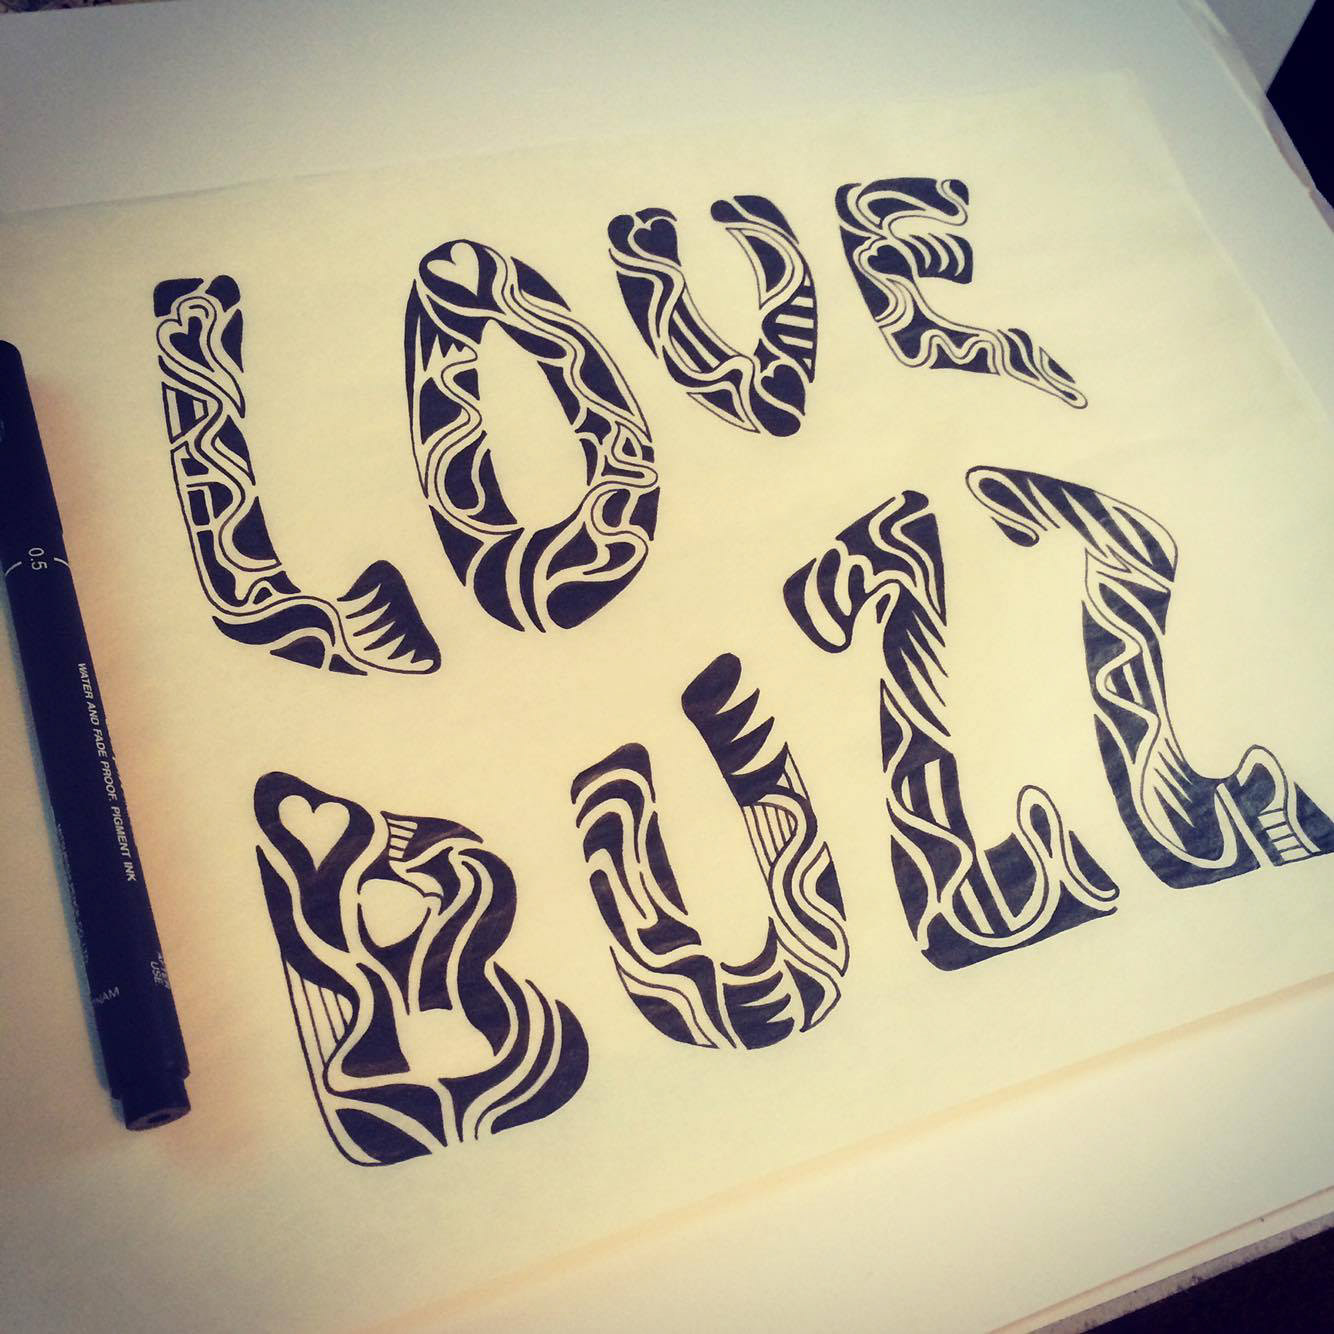 LOVE
BUZZ
0.5
WATER AND FADE PROOF. PIGMENT INK
USE